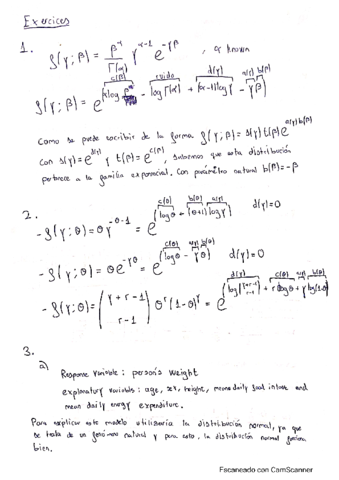 Exercices
1.
f(y; β) = β^α / Γ(α) y^(α-1) e^(-yβ) , α known
c(β) ruido d(y) a(y) b(β)
f(y; β) = e^(αlog β - log Γ(α) + (α-1)log y - yβ)
Como se puede escribir de la forma f(y; β) = s(y) t(β) e^(a(y)b(β))
con s(y) = e^(d(y)) y t(β) = e^(c(β)), sabemos que esta distribución
pertenece a la familia exponencial. Con parámetro natural b(β) = -β
2.
c(θ) b(θ) a(y)
- f(y; θ) = θy^(-θ-1) = e^(logθ + (θ+1)logy) d(y)=0
c(θ) a(y) b(θ)
- f(y; θ) = θe^(-yθ) = e^(logθ - yθ) d(y)=0
d(y) c(θ) a(y) b(θ)
- f(y; θ) = (y+r-1 r-1) θ^r (1-θ)^y = e^(log(y+r-1 r-1) + r logθ + y log(1-θ))
3.
a)
Response variable: person's weight
explanatory variable: age, sex, height, mean daily food intake and
mean daily energy expenditure.
Para explicar este modelo utilizaría la distribución normal, ya que
se trata de un fenómeno natural y para esto, la distribución normal funciona
bien.
Escaneado con CamScanner